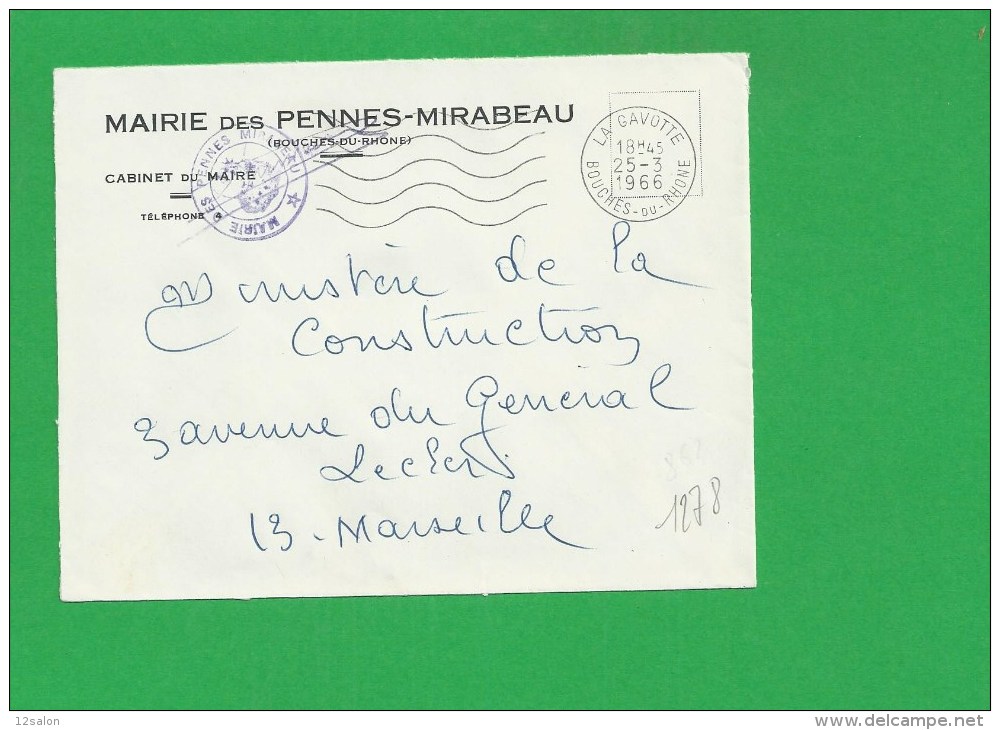 MAIRIE DES PENNES-MIRABEAU
(BOUCHES-DU-RHÔNE)
CABINET DU MAIRE
TÉLÉPHONE 4
MAIRIE DES PENNES MIRABEAU
LA GAVOTTE
18H45
25-3
1966
BOUCHES-DU-RHONE
Ministère de la
Construction
3 avenue du Général
Leclerc
13 - Marseille
1278
12salon
delcampe.net